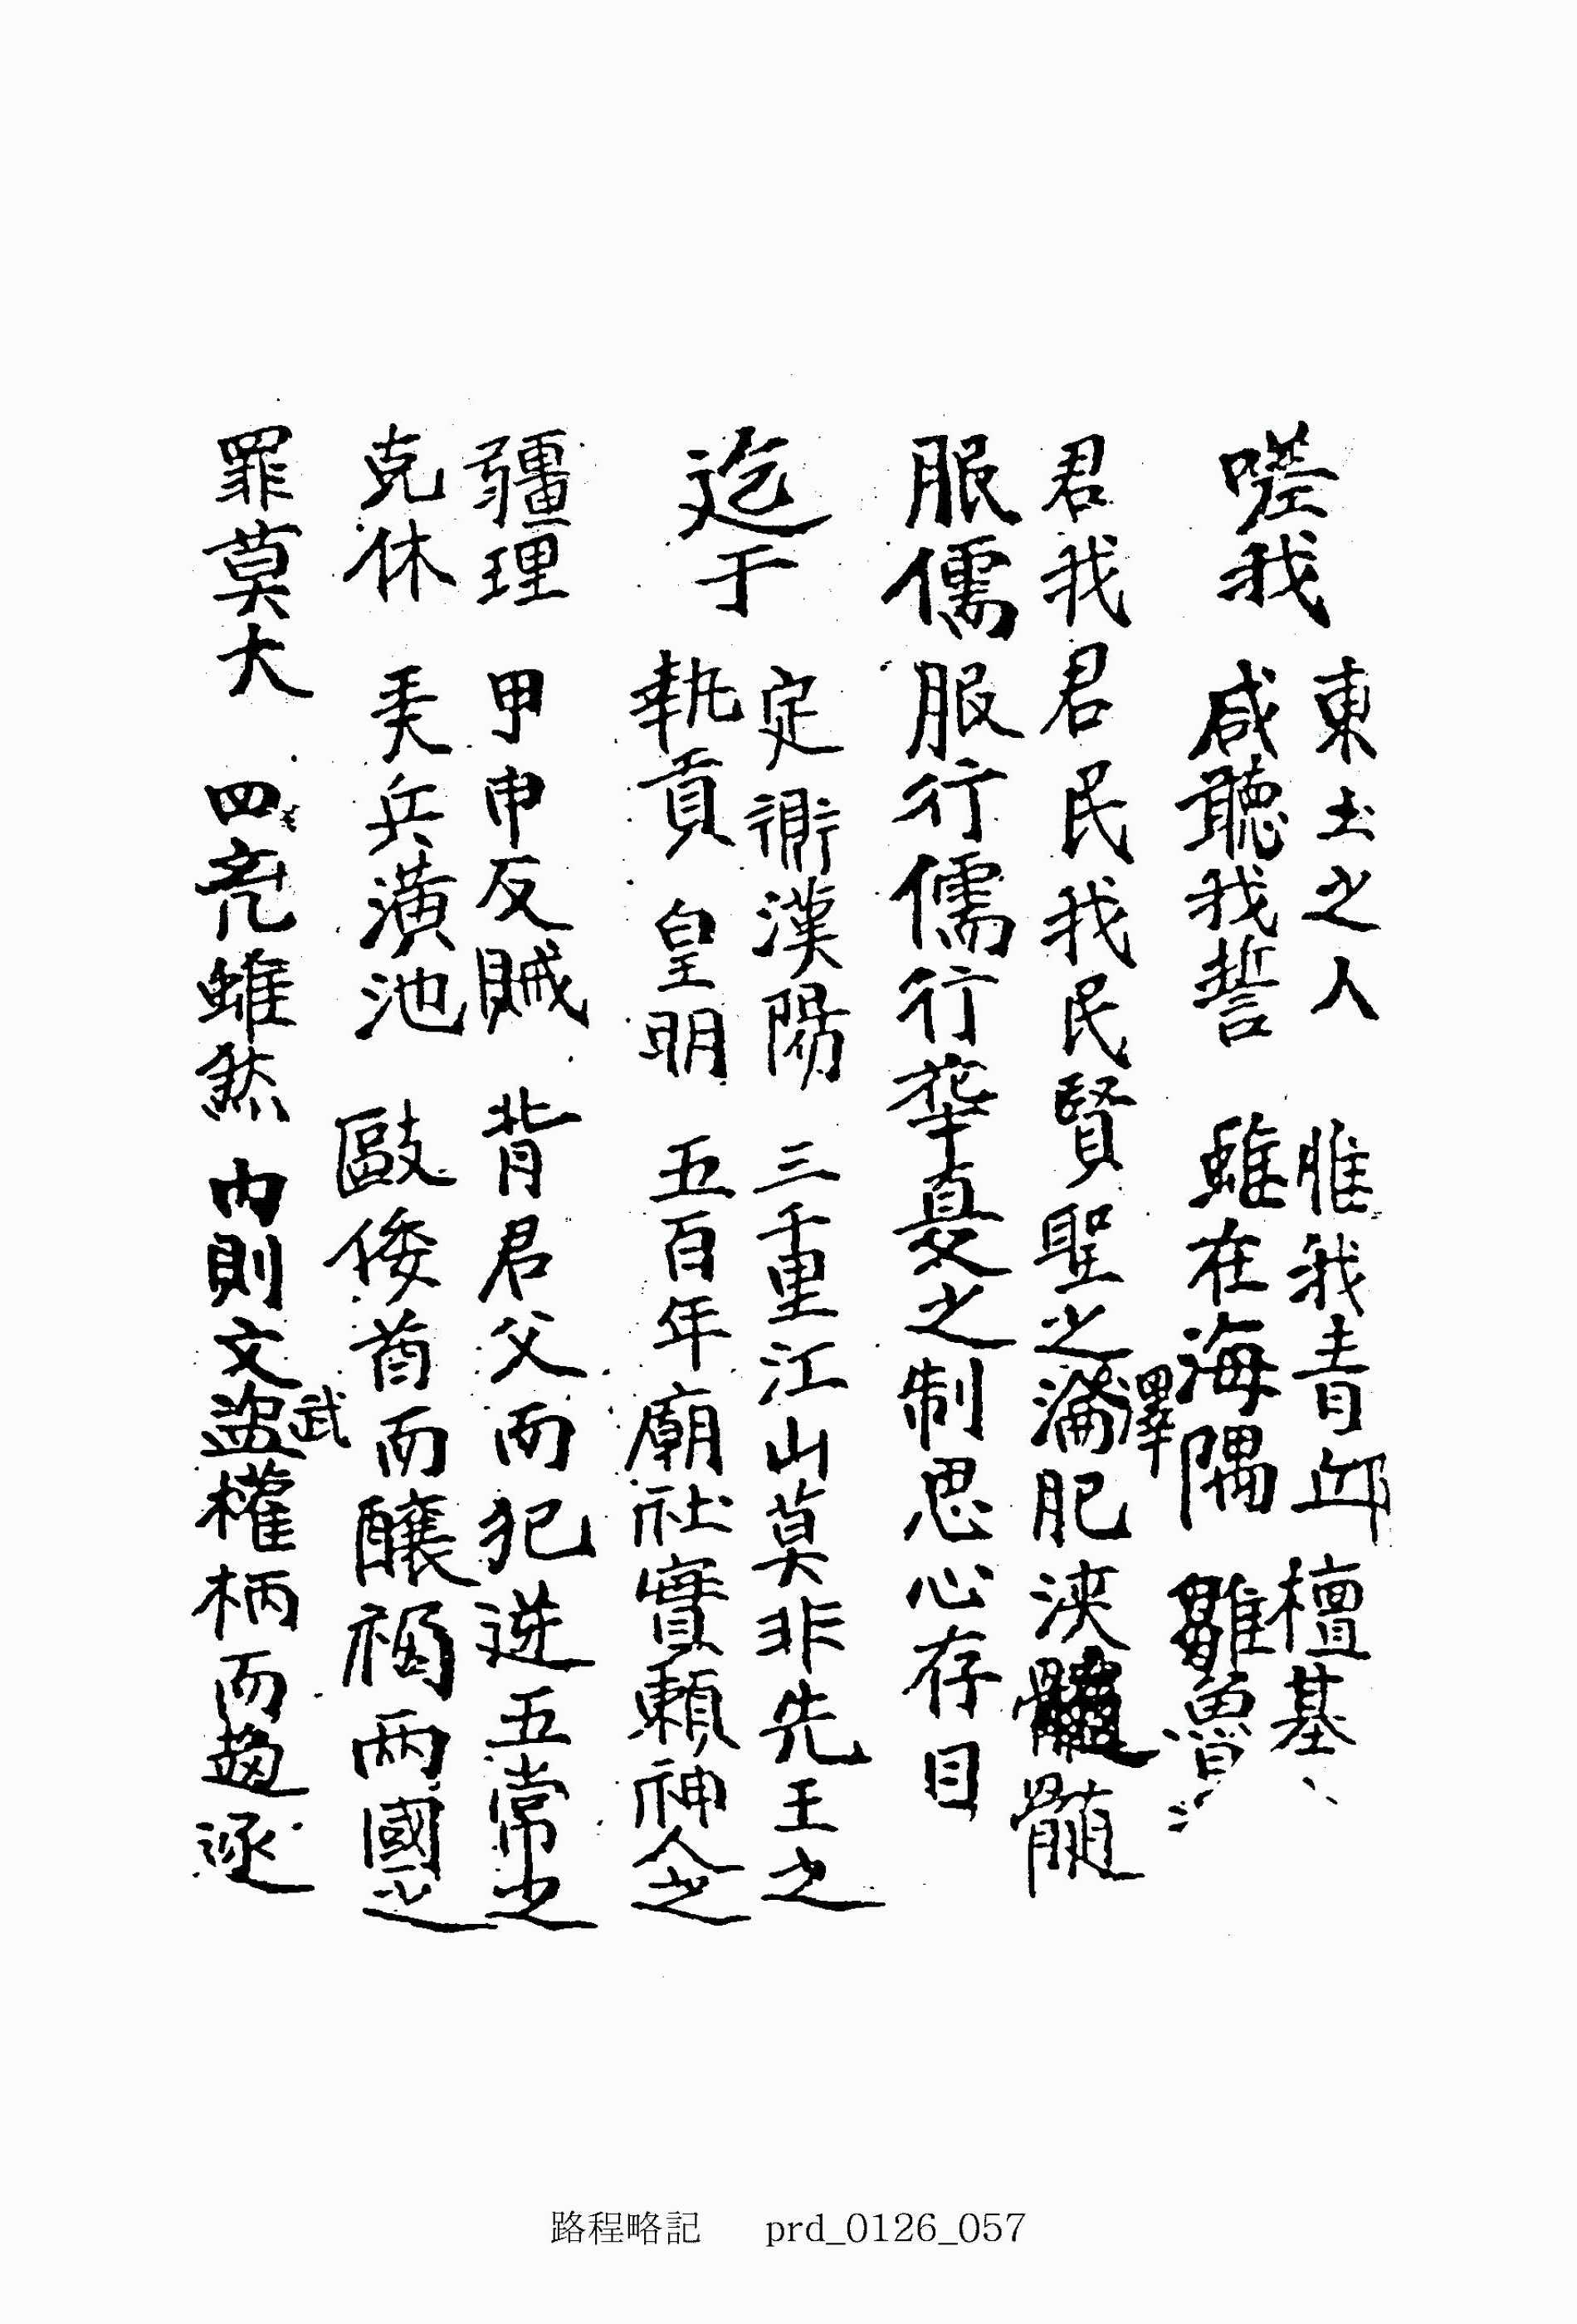 嗟我
東土之人 惟我青邱 檀基、、
咸聽我誓 雖在海隅
君我君民我民賢聖之澤淪肥浹髓
服儒服行儒行華夏之制思心存目
迄于
定 漢陽 三千里江山莫非先王之
執貢 皇明 五百年廟社實賴神人之
疆理 甲申反賊 背君父而犯逆五常之
克休 兵潢池 敺倭酋而釀禍兩國之
罪莫大 四 雖然 內則文武盜權柄而趨逐
路程略記 prd_0126_057